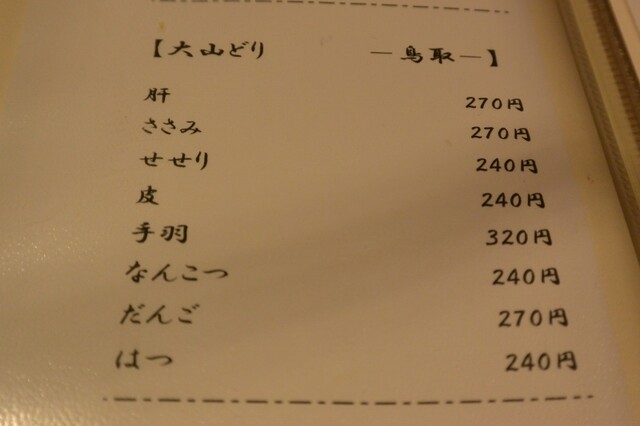 【大山どり ー鳥取ー】
肝 270円
ささみ 270円
せせり 240円
皮 240円
手羽 320円
なんこつ 240円
だんご 270円
はつ 240円